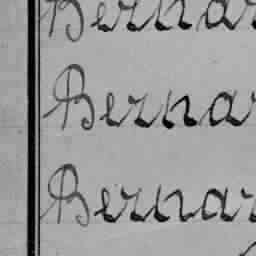 Bernar
Bernar
Bernar